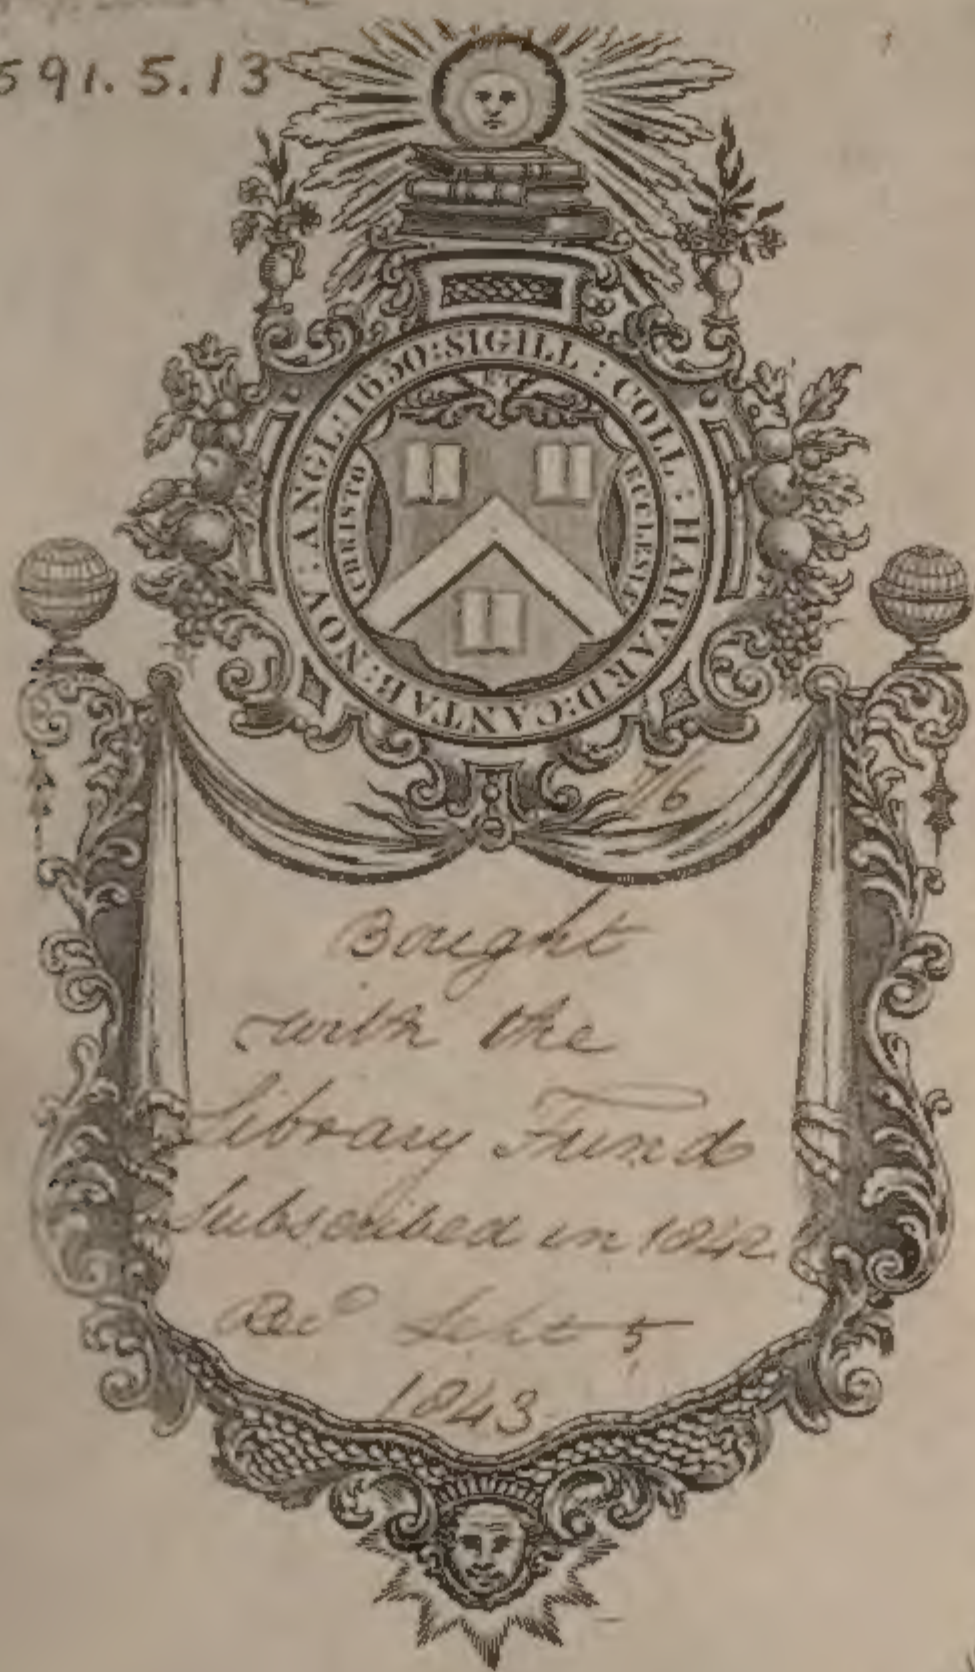 591.5.13
SIGILL : COLL : HARVARD : CANTAB : NOV : ANGL : 1650 :
CHRISTO
ECCLESIÆ
Bought
with the
Library Fund
Subscribed in 1842
Rec^d Sept 5
1843